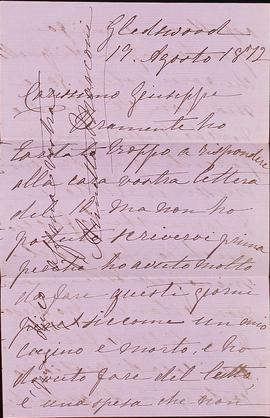 Gledswood
19. Agosto 1872
Carissimo Giuseppe
Veramente ho
tardato troppo a rispondere
alla cara vostra lettera
del 12 ma non ho
potuto scrivervi prima
perchè ho avuto molto
da fare questi giorni
siccome un mio
cugino è morto, e ho
dovuto fare del lutto,
è una spesa che non